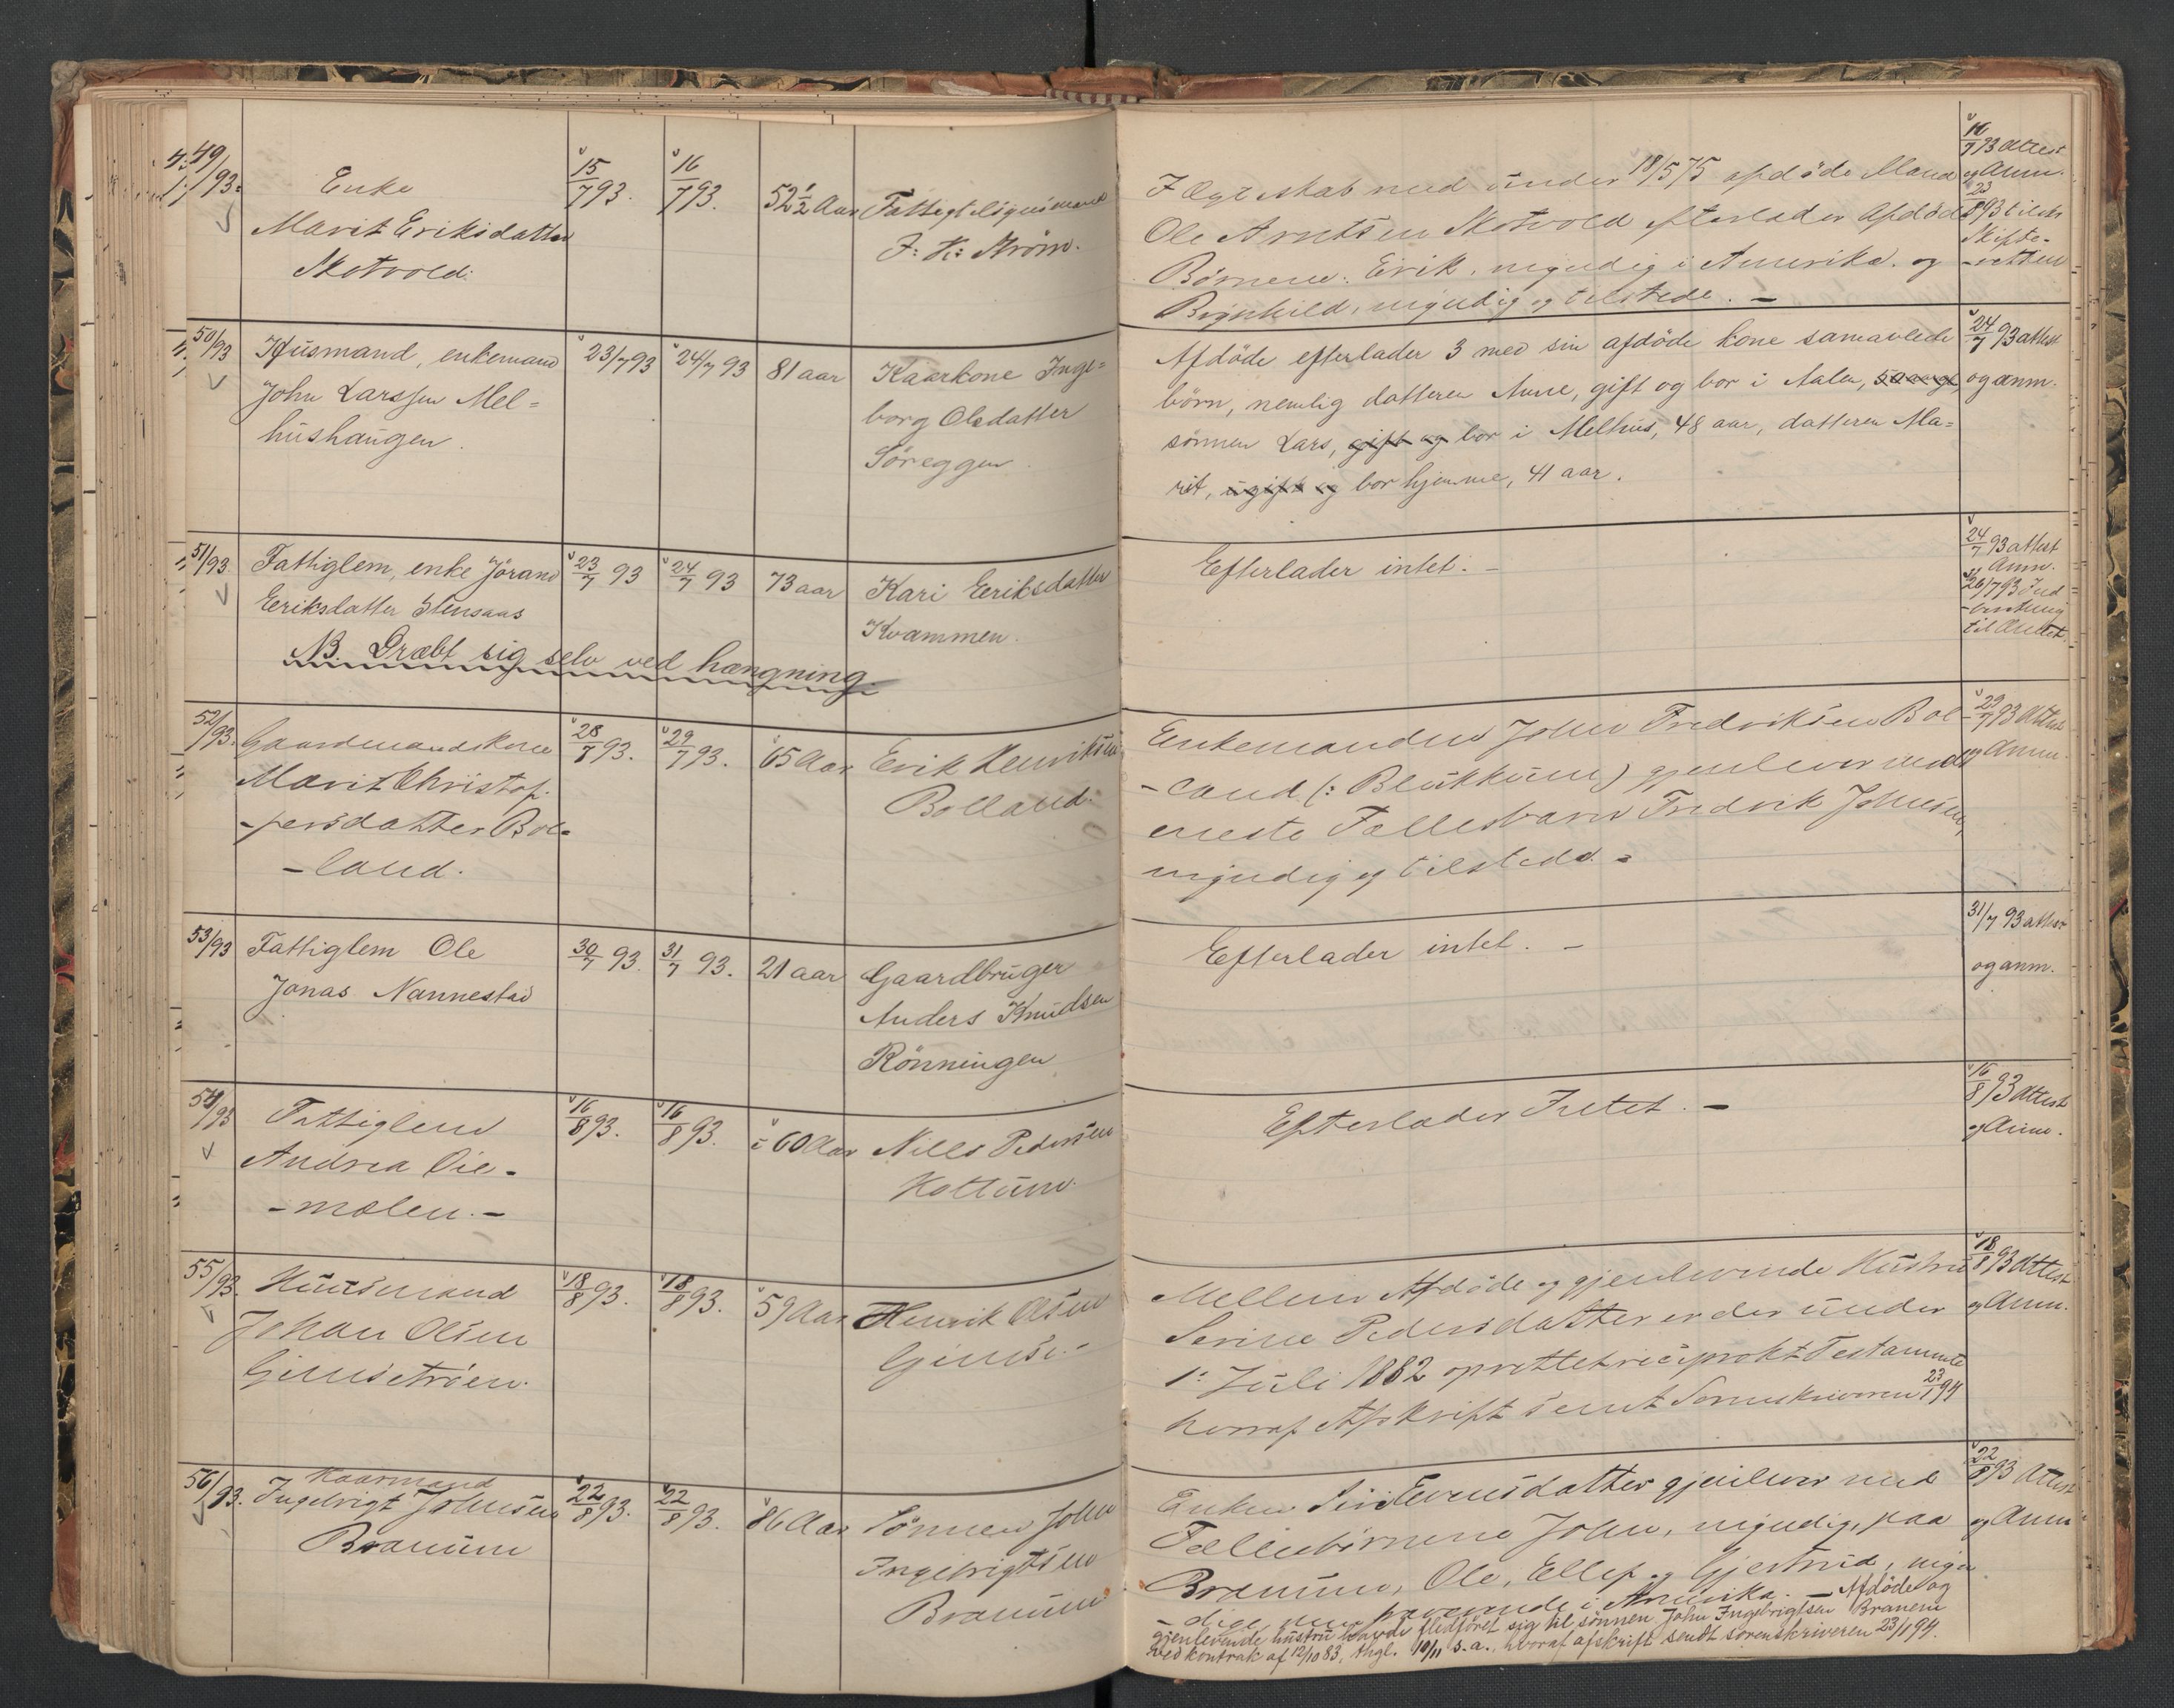 49/93.
Enke
Marit Eriksdatter
Skotvold.
15/7 93.
16/7 93.
52 1/2 Aar
Fattigtilsynsmand
J: K: Strøm.
I Ægteskab med under 18/5 75 afdöde Mand
Ole Arntsen Skotvold efterlader Afdöde
Börnene: Erik, myndig i Amerika. og
Ragnhild, myndig og tilstede. —
16/7 93 attest
og Anm.
23/8 93 tilst.
Skifte-
-retten
50/93
Husmand, enkemand
John Larssen Mel=
hushaugen.
23/7 93
24/7 93
81 aar
Kaarkone Inge=
borg Olsdatter
Söreggen.
Afdöde efterlader 3 med sin afdöde kone samavlede
börn, nemlig datteren Anne, gift og bor i Aalen, 50 aar gl,
sönnen Lars, gift og bor i Melhus, 48 aar, datteren Ma=
rit, ugift og bor hjemme, 41 aar.
24/7 93 attest
og anm.
51/93
Fattiglem, enke Jörand
Eeriksdatter Stensaas
NB. Dræbt sig selv ved hængning.
23/7 93
24/7 93
73 aar
Kari Eeriksdatter
Kvammen.
Efterlader intet. —
24/7 93 attest
Anm.
26/7 93 Ind
-beretning
til Amtet.
52/93.
Gaardmandskone
Marit Christof-
-fersdatter Bol=
-land.
28/7 93.
29/7 93.
65 Aar
Erik Henriksen
Bolland.
Enkemanden John Fredriksen Bol
-land (: Blukkum) gjenlever med
eneste Fællesbarn Fredrik Johnsen,
myndig og tilstede. —
29/7 93 Attest
og Anm.
53/93
Fattiglem Ole
Jonas Nannestad
30/7 93.
31/7 93.
21 aar
Gaardbruger
Anders Knudsen
Rönningen
Efterlader intet. —
31/7 93 attest
og anm.
54/93
Fattiglem
Andrea Öie-
-molen. —
16/8 93.
16/8 93.
60 Aar
Nills Pedersen
Kottum.
Efterlader Intet. —
16/8 93 Attest
og Anm.
55/93.
Huusmand
Johan Olsen
Gimsetröen.
18/8 93.
18/8 93.
59 Aar
Henrik Olsen
Gimse. —
Mellem Afdöde og gjenlevende Hustru
Serine Pedersdatter er der under
1: Juli 1882 oprettet reciprokt Testamente
hvoraf Afskrift sendt Sorenskriveren 23/1 94
18/8 93 Attest
og Anm.
56/93.
Kaarmand
Ingebrigt Johnsen
Branum
22/8 93.
22/8 93.
86 Aar
Sönnen John
Ingebrigtsen
Branum
Enken Siri Evensdatter gjenlever med
Fællesbörnene John, myndig, paa
Branum, Ole, Ellef og Gjertrud, myn
-dige, men fraværende i Amerika. — Afdöde og
gjenlevende hustru havde flidföret sig til sönnen John Ingebrigtsen Branem
ved kontrak af 12/10 83, thgl. 10/11 s.a., hvoraf afskrift sendt sorenskriveren 23/1 94.
22/8 93 Attest
og Anm